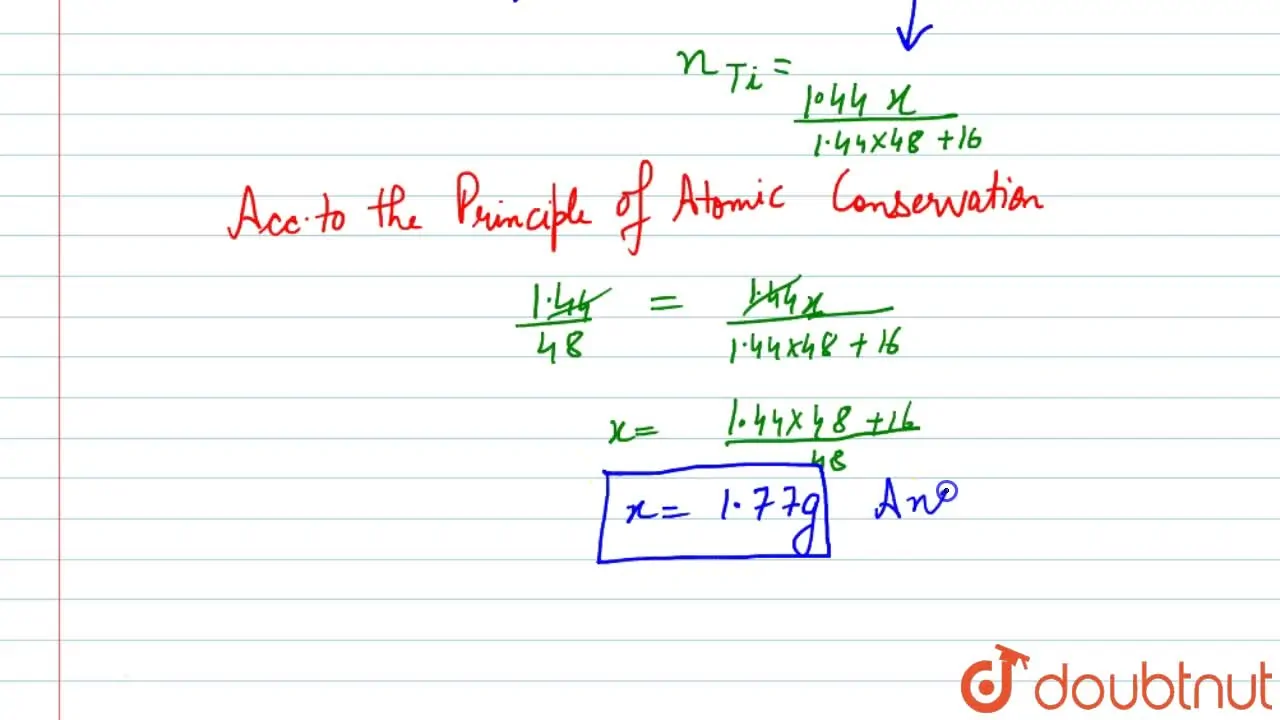 n Ti =
1.44 x
1.44×48 + 16
Acc. to the Principle of Atomic Conservation
1.44 = 1.44x
48 1.44×48 + 16
x = 1.44×48 + 16
48
x = 1.77g Ans
doubtnut